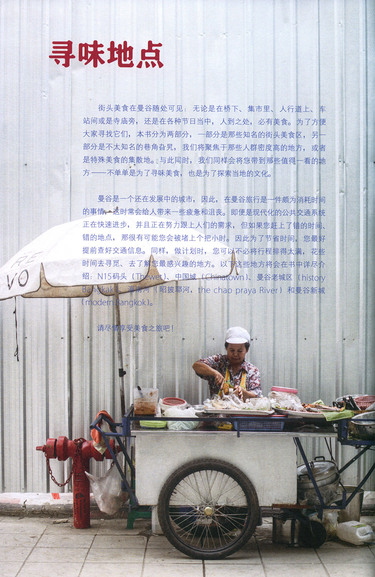 寻味地点
街头美食在曼谷随处可见：无论是在桥下、集市里、人行道上、车
站间或是寺庙旁，还是在各种节日当中，人到之处，必有美食。为了方便
大家寻找它们，本书分为两部分，一部分是那些知名的街头美食区，另一
部分是不太知名的巷角旮旯，我们将聚焦于那些人群密度高的地方，或者
是特殊美食的集散地。与此同时，我们同样会将您带到那些值得一看的地
方——不单单是为了寻味美食，也是为了探索当地的文化。
曼谷是一个还在发展中的城市，因此，在曼谷旅行是一件颇为消耗时间
的事情，这时常会给人带来一些疲惫和沮丧。即便是现代化的公共交通系统
正在快速进步，并且正在努力跟上人们的需求，但如果您赶上了错的时间、
错的地点，那很有可能您会被堵上个把小时。因此为了节省时间，您最好
提前查好交通信息。同样，做计划时，您可以不必将行程排得太满，花些
时间去寻觅、去了解您最感兴趣的地方。以下这些地方将会在书中详尽介
绍：N15码头（Thewet）、中国城（Chinatown）、曼谷老城区（history
（昭披耶河，the chao praya River）和曼谷新城
（modern bangkok）。
请尽情享受美食之旅吧！
RE
VO